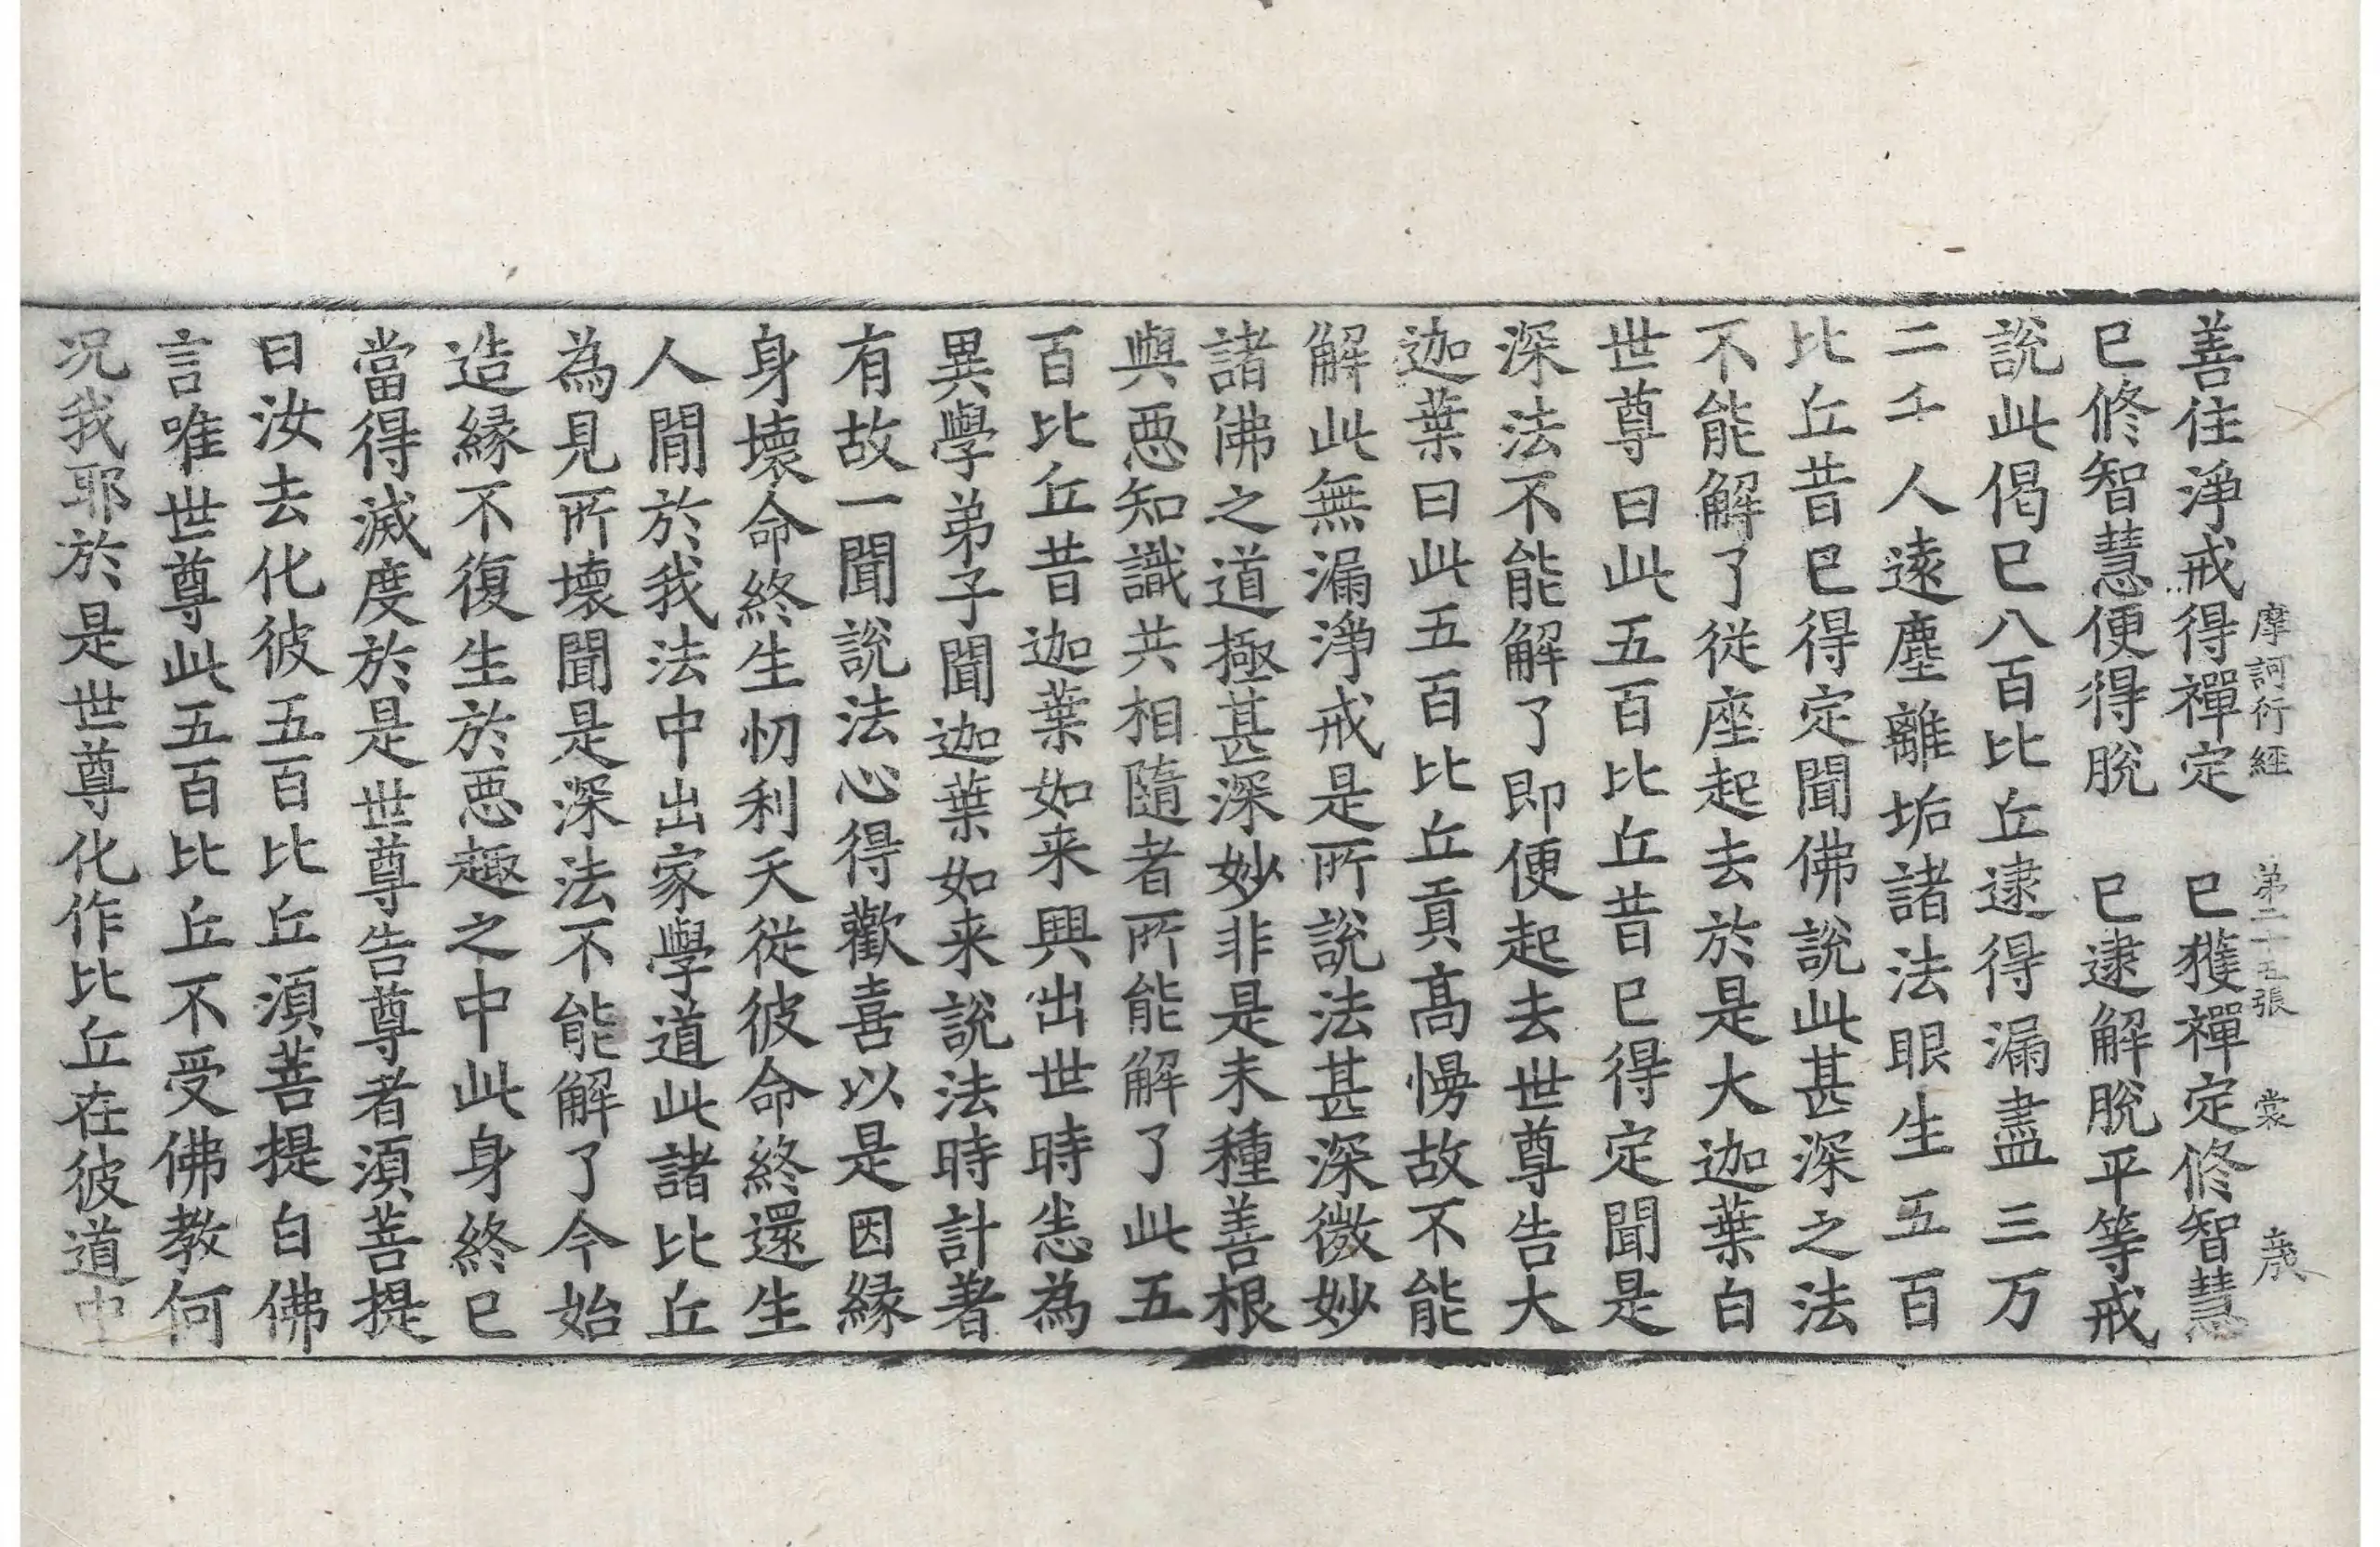 摩訶衍經 第二十五張 裳
善住淨戒得禪定 已獲禪定修智慧
已修智慧便得脫 已逮解脫平等戒
說此偈已八百比丘逮得漏盡三万
二千人遠塵離垢諸法眼生五百
比丘昔已得定聞佛說此甚深之法
不能解了從座起去於是大迦葉白
世尊曰此五百比丘昔已得定聞是
深法不能解了即便起去世尊告大
迦葉曰此五百比丘貢高慢故不能
解此無漏淨戒是所說法甚深微妙
諸佛之道極甚深妙非是未種善根
與惡知識共相隨者所能解了此五
百比丘昔迦葉如来興出世時恙為
異學弟子聞迦葉如来說法時計著
有故一聞說法心得歡喜以是因緣
身壞命終生忉利天從彼命終還生
人閒於我法中出家學道此諸比丘
為見所壞聞是深法不能解了今始
造緣不復生於惡趣之中此身終已
當得滅度於是世尊告尊者須菩提
曰汝去化彼五百比丘須菩提白佛
言唯世尊此五百比丘不受佛教何
况我耶於是世尊化作比丘在彼道中